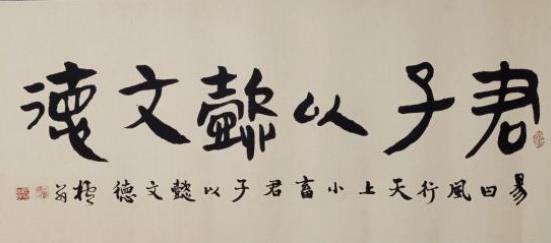 君子以懿文德
易曰風行天上小畜君子以懿文德 樗翁